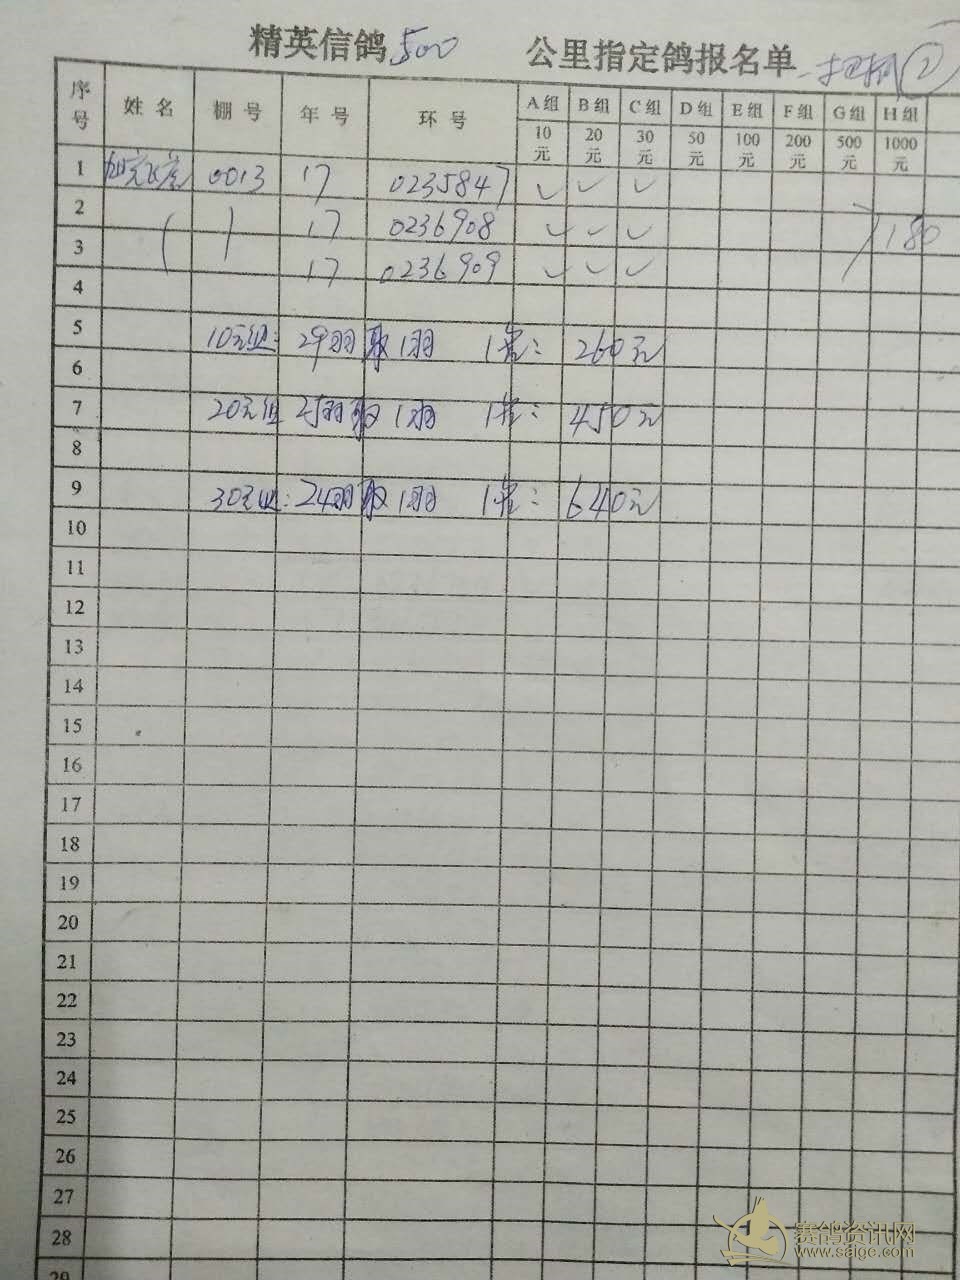 精英信鸽500 公里指定鸽报名单 ②
序号 姓名 棚号 年号 环号 A组 B组 C组 D组 E组 F组 G组 H组
10元 20元 30元 50元 100元 200元 500元 1000元
1 0013 17 0235847 ✓ ✓ ✓
2 17 0236908 ✓ ✓ ✓ 180
3 17 0236909 ✓ ✓ ✓
4
5 10元组: 29羽取1羽 1名: 260元
6
7 20元组 25羽取1羽 1名: 450元
8
9 30元组: 24羽取1羽 1名: 640元
10
11
12
13
14
15
16
17
18
19
20
21
22
23
24
25
26
27
28
29
赛鸽资讯网
www.saige.com